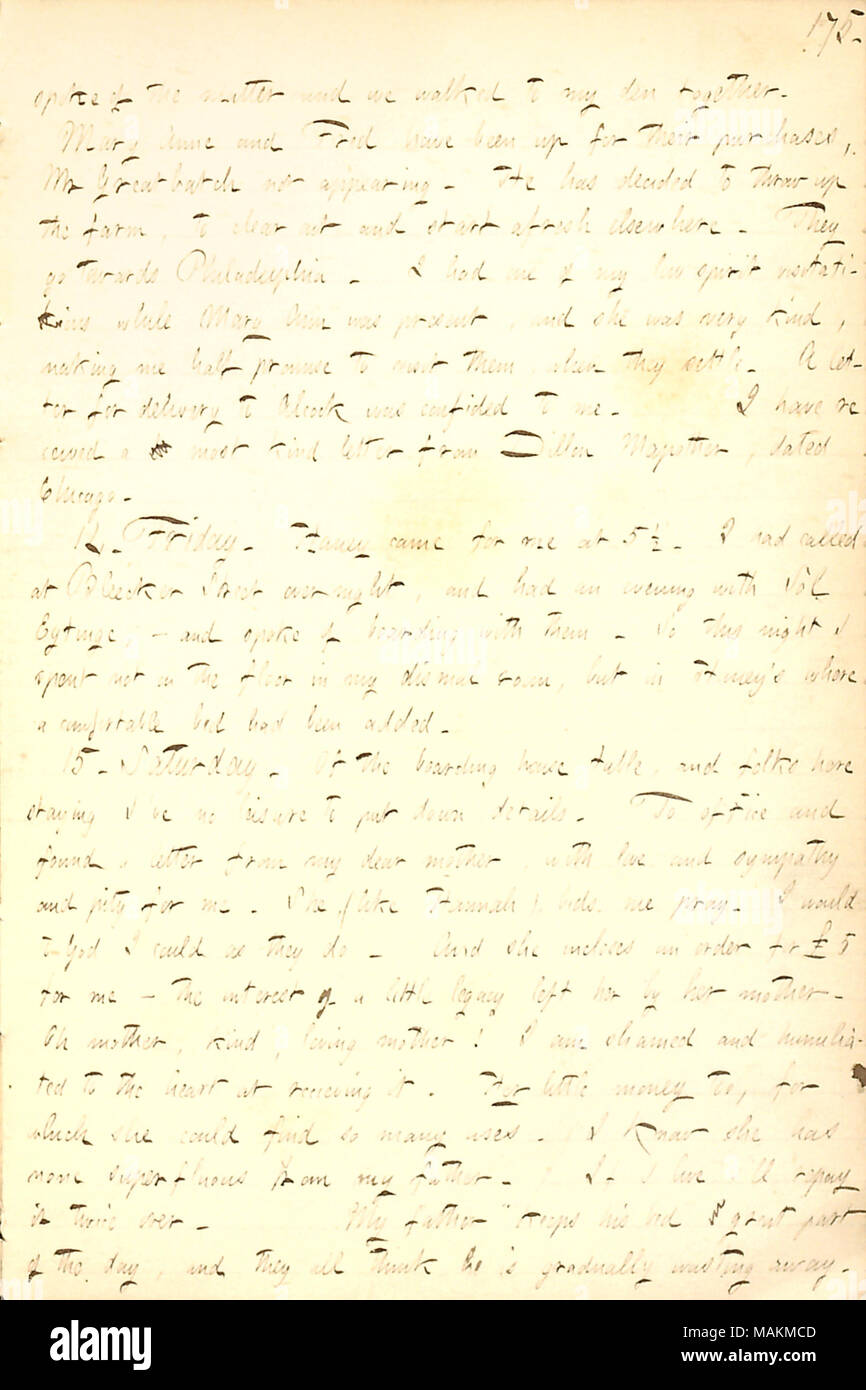 175.
spoke of the matter and we walked to my den together.
Mary Anne and Fred have been up for their purchases,
Mr Greatbatch not appearing. He has decided to throw up
the farm, to clear out and start afresh elsewhere. They
go towards Philadelphia. I had one of my low spirit visitati-
ons while Mary Ann was present, and she was very kind,
making me half promise to visit them when they settle. A let-
ter for delivery to Alcock was confided to me. I have re
ceived a most kind letter from Dillon Mapother, dated
Chicago.
14. Friday. Haney came for me at 5 ½. I had called
at Bleecker Street over night, and had an evening with Sol
Eytinge, — and spoke of boarding with them. So this night I
spent not on the floor in my dismal room, but in Haney's where
a comfortable bed had been added.
15. Saturday. Of the boarding house table, and folks here
staying I've no leisure to put down details. To office and
found a letter from my dear mother, with love and sympathy
and pity for me. She (like Hannah) bids me pray. I would
to God I could as they do. And she incloses an order for £5
for me — the interest of a little legacy left her by her mother.
Oh mother, kind, loving mother! I am shamed and humilia-
ted to the heart at receiving it. Her little money too, for
which she could find so many uses. I know she has
none superfluous from my father. If I live I'll repay
it twice over. My father "keeps his bed great part
of the day, and they all think he is gradually wasting away.
alamy
Image ID: MAKMCD
www.alamy.com